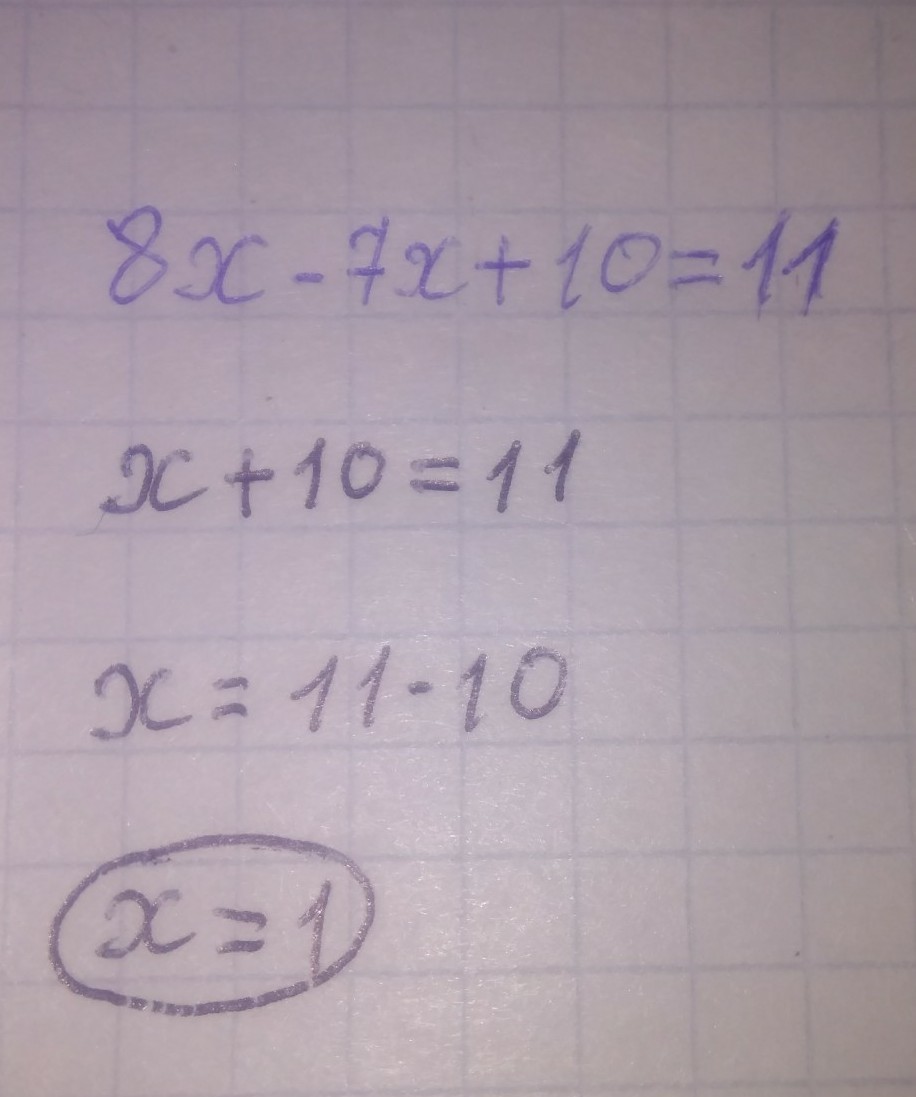 8x-7x+10=11
x+10=11
x=11-10
x=1